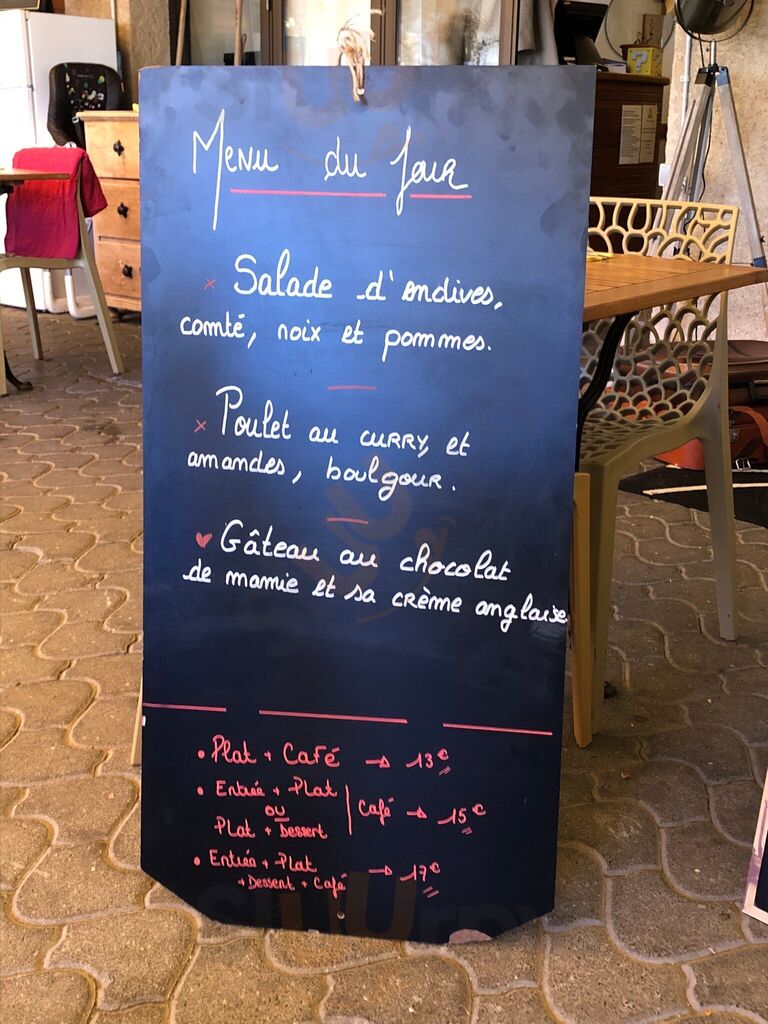 Menu du Jour
x Salade d'endives,
comté, noix et pommes.
x Poulet au curry, et
amandes, boulgour.
♥ Gâteau au chocolat
de mamie et sa crème anglaise
• Plat + Café → 13€
• Entrée + Plat
ou
Plat + Dessert
Café → 15€
• Entrée + Plat
+ Dessert + Café → 17€